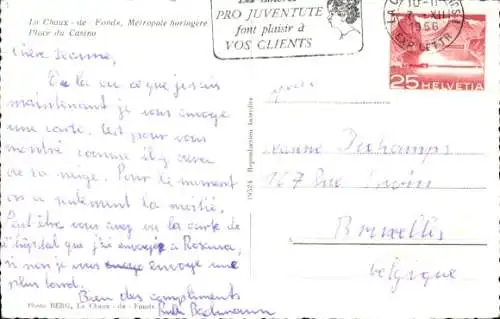 La Chaux - de - Fonds, Métropole horlogère
Place du Casino
PRO JUVENTUTE
font plaisir à
VOS CLIENTS
10-11
1956
EXP. LETTR
25 HELVETIA
Chère Jeanne,
En la vu ce que je suis
maintenant je vous envoye
une carte. C'est pour vous
montré comme il y avait
de la neige. Pour le moment
on a seulement la moitié.
Peut être vous avez vu la carte de
l'hôpital que j'ai envoyée à Rosina,
si non je vous envoye une
plus tard.
Bien des compliments
Ruth Bachmann
Jeanne Dechamps
167 Rue
Bruxelles
Belgique
19324 Reproduction interdite
Photo BERG, La Chaux - de - Fonds